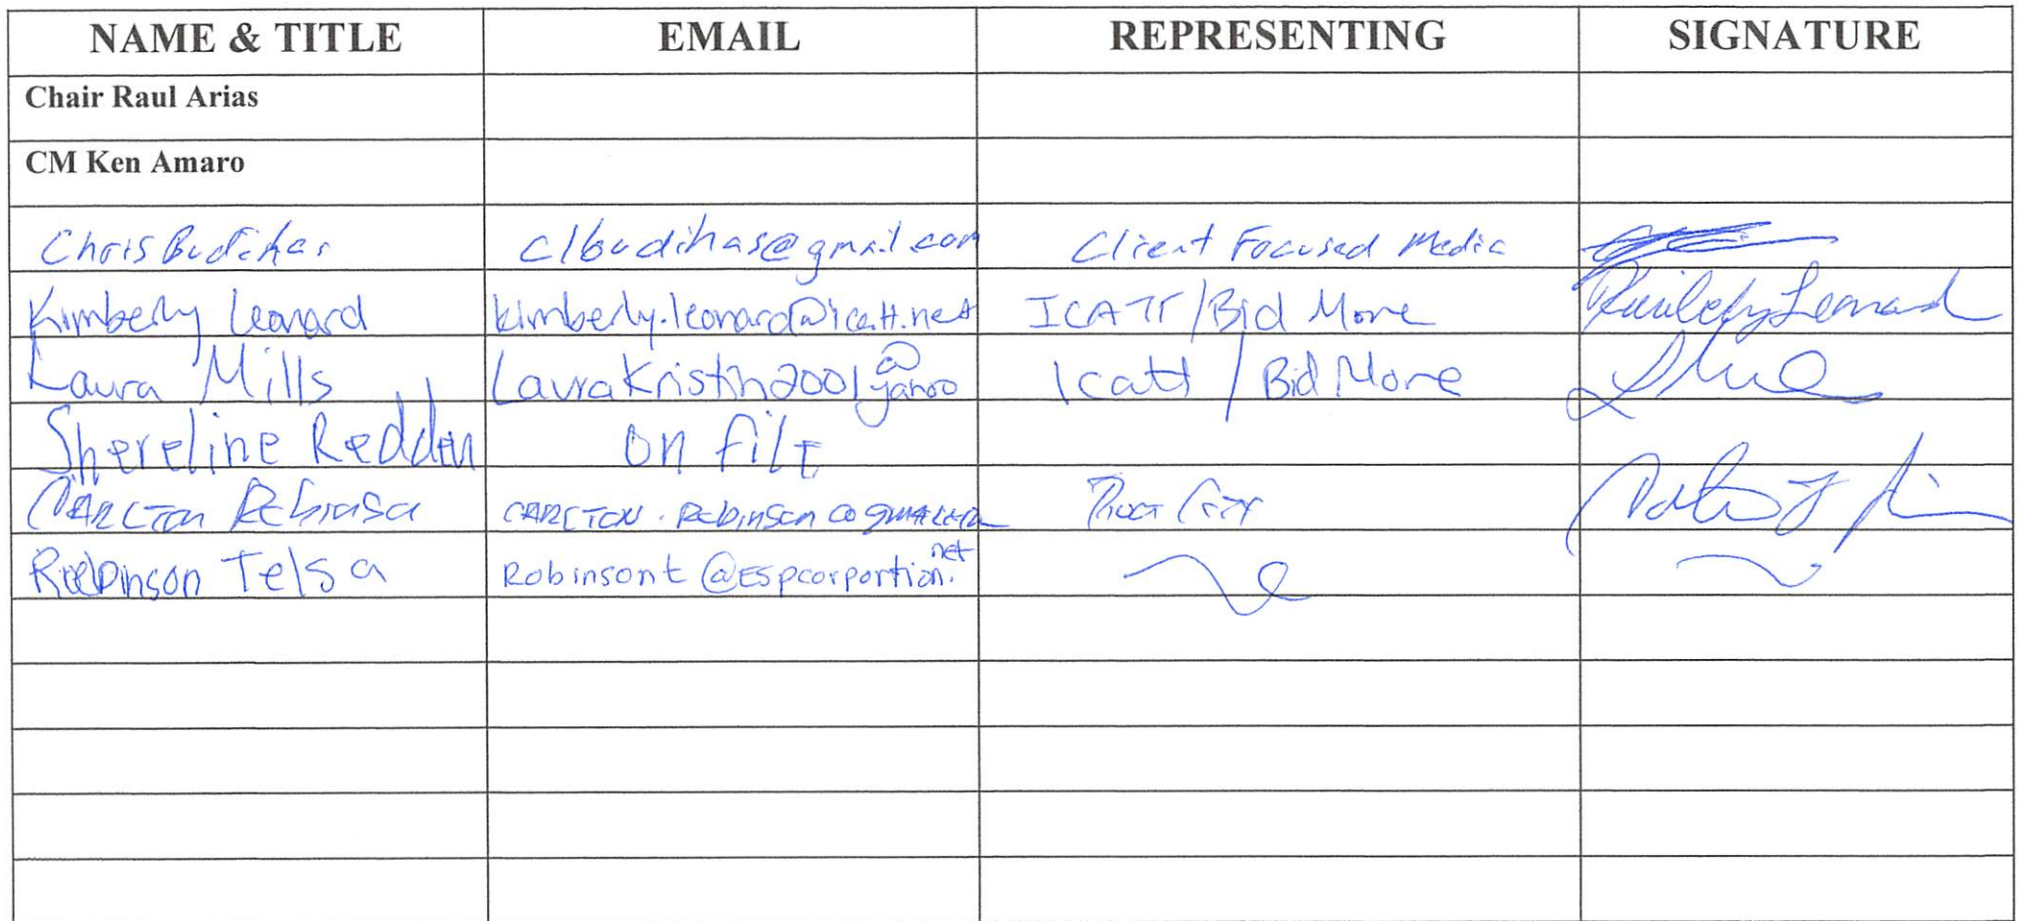 NAME & TITLE EMAIL REPRESENTING SIGNATURE
Chair Raul Arias
CM Ken Amaro
Chris Budihas clbudihas@gmail.com Client Focused Media
Kimberly Leonard kimberly.leonard@icatt.net ICATT/Bid More Kimberly Leonard
Laura Mills LauraKristin2001@yahoo Icatt / Bid More
Shereline Redden on filE
CARLTON Robinson CARLTON.Robinson
Robinson Telsa Robinsont@Espcorportion.net